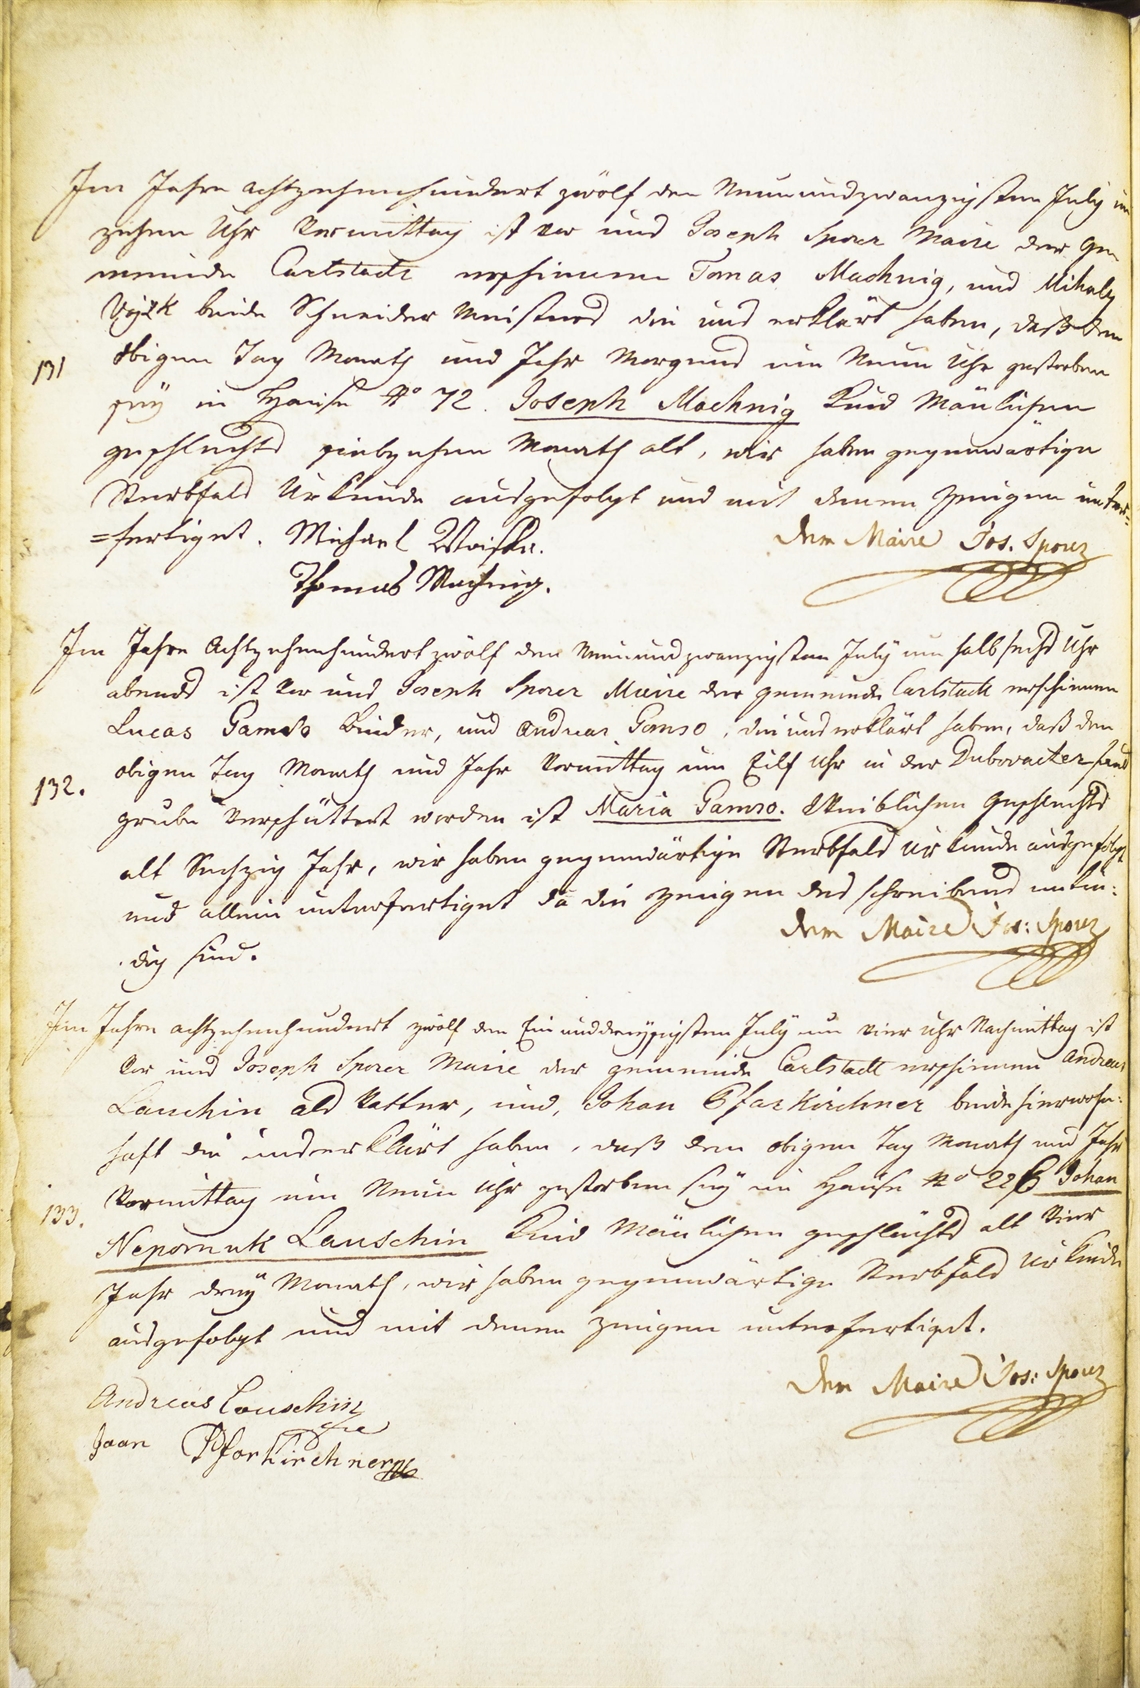 Im Jahre achtzehenhundert zwölf den Neunundzwanzigsten July um
zehen Uhr Vormittag ist vor uns Joseph Sporer Maire der Ge
meinde Carlstadt erschienen Tomas Machnig, und Mihaly
beide Schneider Meisters die uns erklärt haben, daß den
131 obigen Tag Monath und Jahr Morgens um Neun Uhr gestorben
sey in Hause No 72. Joseph Machnig Kind Mänlichen
geschlechts siebzehen Monath alt, wir haben gegenwärtige
Sterbfals Urkunde ausgefolgt und mit denen Zeugen unter=
=fertiget. Michael
Der Maire Jos. Sporer
Thomas Machnig.
Im Jahre Achtzehenhundert zwölf den Neunundzwanzigsten July um halb sechs Uhr
abends ist vor uns Joseph Sporer Maire der gemeinde Carlstadt erschienen
Lucas Gamso Binder, und Andreas Gamso, die uns erklärt haben, daß den
obigen Tag Monath und Jahr Vormittag um Eilf Uhr in der Dubovacter sand
132. grube verschüttert worden ist Maria Gamso. Weiblichen Geschlechts
alt Sechzig Jahr, wir haben gegenwärtige Sterbfals Urkunde ausgefolgt
und allein unterfertiget da die Zeugen des schreibens unkün:
dig sind.
Der Maire Jos: Sporer
Im Jahre achtzehenhundert zwölf den Einunddreyßigsten July um vier Uhr Nachmittag ist
vor uns Joseph Sporer Maire der gemeinde Carlstadt erschienen Andreas
Lauschin als Vatter, und, Johan Pfarkirchner beide hierwohn:
haft die uns erklärt haben, daß den obigen Tag Monath und Jahr
Vormittag um Neun Uhr gestorben sey in Hause No 226 Johan
133. Nepomuk Lauschin Kind Mänlichen geschlechts alt Vier
Jahr drey Monath, wir haben gegenwärtige Sterbfals Urkunde
ausgefolgt und mit denen Zeugen unterfertiget.
Der Maire Jos: Sporer
Andreas Lauschin
Joan Pforkirchner